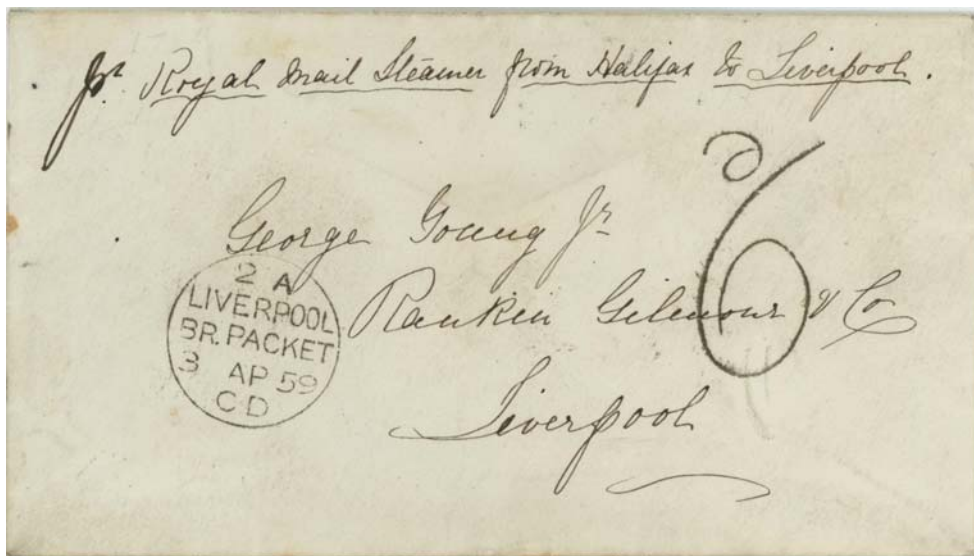 pr. Royal Mail Steamer from Halifax to Liverpool.
6
George Young Jr
Rankin Gilmour & Co
Liverpool
2 A
LIVERPOOL
BR. PACKET
3 AP 59
C D